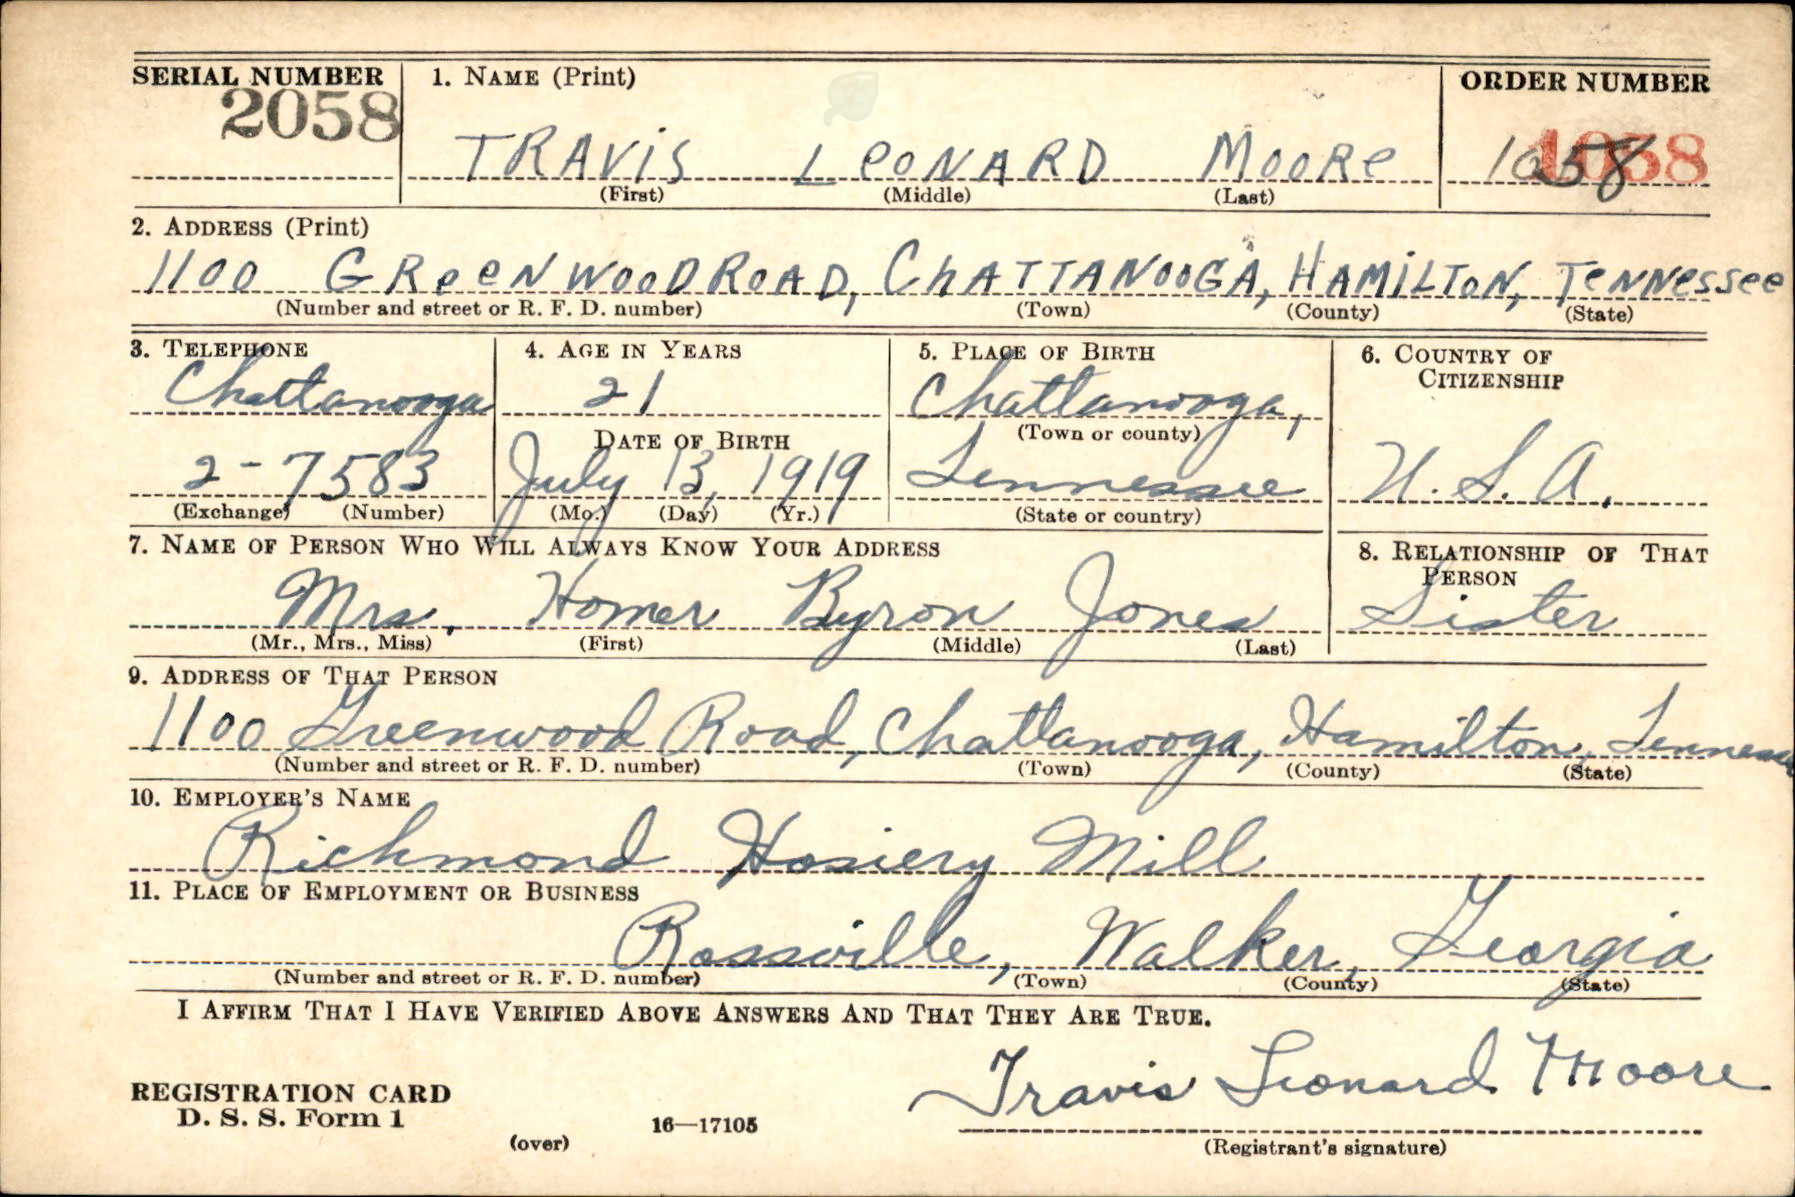 SERIAL NUMBER 1. NAME (Print) ORDER NUMBER
2058 TRAVIS LEONARD MOORE 1058 1058
(First) (Middle) (Last)
2. ADDRESS (Print)
1100 GREENWOOD ROAD, CHATTANOOGA, HAMILTON, TENNESSEE
(Number and street or R. F. D. number) (Town) (County) (State)
3. TELEPHONE 4. AGE IN YEARS 5. PLACE OF BIRTH 6. COUNTRY OF
CITIZENSHIP
Chattanooga 21 Chattanooga,
DATE OF BIRTH (Town or county)
2-7583 July 13, 1919 Tennessee U. S. A.
(Exchange) (Number) (Mo.) (Day) (Yr.) (State or country)
7. NAME OF PERSON WHO WILL ALWAYS KNOW YOUR ADDRESS 8. RELATIONSHIP OF THAT
PERSON
Mrs. Homer Byron Jones Sister
(Mr., Mrs., Miss) (First) (Middle) (Last)
9. ADDRESS OF THAT PERSON
1100 Greenwood Road, Chattanooga, Hamilton, Tennessee
(Number and street or R. F. D. number) (Town) (County) (State)
10. EMPLOYER'S NAME
Richmond Hosiery Mill
11. PLACE OF EMPLOYMENT OR BUSINESS
Rossville, Walker, Georgia
(Number and street or R. F. D. number) (Town) (County) (State)
I AFFIRM THAT I HAVE VERIFIED ABOVE ANSWERS AND THAT THEY ARE TRUE.
Travis Leonard Moore
REGISTRATION CARD
D. S. S. Form 1 16—17105
(over) (Registrant's signature)